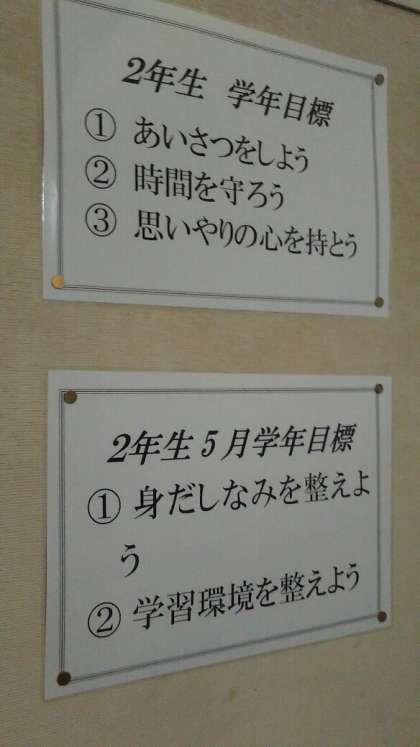 2年生 学年目標
① あいさつをしよう
② 時間を守ろう
③ 思いやりの心を持とう
2年生5月学年目標
① 身だしなみを整えよ
う
② 学習環境を整えよう